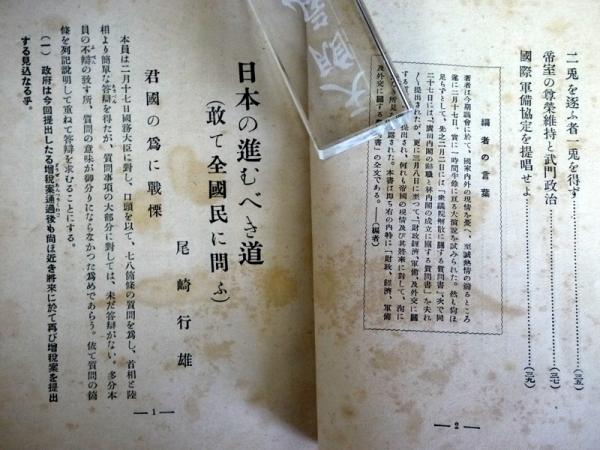 二兎を逐ふ者一兎を得ず………(三五)
帝室の尊榮維持と武門政治………(三七)
國際軍備協定を提唱せよ………(三九)
編者の言葉
著者は今期議會に於て、國家內外の現情を憂へ、至誠熱情の溢るところ
遂に二月十七日、實に一時間半餘に亙る大演說を試みられた。然も尙ほ
足らずとして、先之二月二日には「衆議院解散に關する質問書」次で同
二十七日には、「廣田內閣の辭職と林內閣の成立に關する質問書」を夫れ
提出されたが、更に三月八日に至つて「財政經濟、軍備、及外交に關
提出され、何れも帝國の現情及び其將來に對して、洵に
露された。本書は即ち右の內特に「財政、經濟、軍備
及外交に關する質問書」の全文である。――(編者)
— 2 —
日本の進むべき道
(敢て全國民に問ふ)
尾崎行雄
君國の爲に戰慄
本員は二月十七日國務大臣に對し、口頭を以て、七八箇條の質問を爲し、首相と陸
相より簡單な答辯を得たが、質問事項の大部分に對しては、未だ答辯がない。多分本
員の不辯の致す所、質問の意味が御分りにならなかつた爲めであらう。依て質問の箇
條を列記說明して重ねて答辯を求むることにする。
(一) 政府は今回提出したる增稅案通過後も尙ほ近き將來に於て再び增稅案を提出
する見込なる乎。
— 1 —